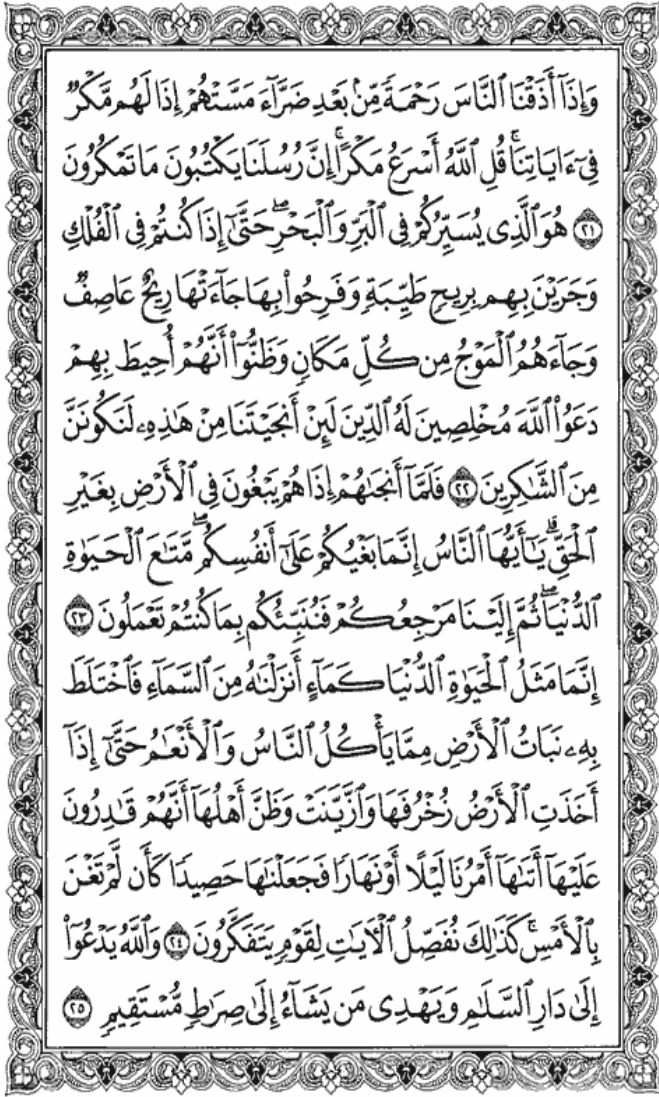 وَإِذَآ أَذَقْنَا ٱلنَّاسَ رَحْمَةً مِّنۢ بَعْدِ ضَرَّآءَ مَسَّتْهُمْ إِذَا لَهُم مَّكْرٌ
فِىٓ ءَايَاتِنَا ۚ قُلِ ٱللَّهُ أَسْرَعُ مَكْرًا ۚ إِنَّ رُسُلَنَا يَكْتُبُونَ مَا تَمْكُرُونَ
﴿٢١﴾ هُوَ ٱلَّذِى يُسَيِّرُكُمْ فِى ٱلْبَرِّ وَٱلْبَحْرِ ۖ حَتَّىٰٓ إِذَا كُنتُمْ فِى ٱلْفُلْكِ
وَجَرَيْنَ بِهِم بِرِيحٍ طَيِّبَةٍ وَفَرِحُوا۟ بِهَا جَآءَتْهَا رِيحٌ عَاصِفٌ
وَجَآءَهُمُ ٱلْمَوْجُ مِن كُلِّ مَكَانٍ وَظَنُّوٓا۟ أَنَّهُمْ أُحِيطَ بِهِمْ
دَعَوُا۟ ٱللَّهَ مُخْلِصِينَ لَهُ ٱلدِّينَ لَئِنْ أَنجَيْتَنَا مِنْ هَـٰذِهِۦ لَنَكُونَنَّ
مِنَ ٱلشَّـٰكِرِينَ ﴿٢٢﴾ فَلَمَّآ أَنجَىٰهُمْ إِذَا هُمْ يَبْغُونَ فِى ٱلْأَرْضِ بِغَيْرِ
ٱلْحَقِّ ۗ يَـٰٓأَيُّهَا ٱلنَّاسُ إِنَّمَا بَغْيُكُمْ عَلَىٰٓ أَنفُسِكُم ۖ مَّتَـٰعَ ٱلْحَيَوٰةِ
ٱلدُّنْيَا ۖ ثُمَّ إِلَيْنَا مَرْجِعُكُمْ فَنُنَبِّئُكُم بِمَا كُنتُمْ تَعْمَلُونَ ﴿٢٣﴾
إِنَّمَا مَثَلُ ٱلْحَيَوٰةِ ٱلدُّنْيَا كَمَآءٍ أَنزَلْنَـٰهُ مِنَ ٱلسَّمَآءِ فَٱخْتَلَطَ
بِهِۦ نَبَاتُ ٱلْأَرْضِ مِمَّا يَأْكُلُ ٱلنَّاسُ وَٱلْأَنْعَـٰمُ حَتَّىٰٓ إِذَآ
أَخَذَتِ ٱلْأَرْضُ زُخْرُفَهَا وَٱزَّيَّنَتْ وَظَنَّ أَهْلُهَآ أَنَّهُمْ قَـٰدِرُونَ
عَلَيْهَآ أَتَىٰهَآ أَمْرُنَا لَيْلًا أَوْ نَهَارًا فَجَعَلْنَـٰهَا حَصِيدًا كَأَن لَّمْ تَغْنَ
بِٱلْأَمْسِ ۚ كَذَٰلِكَ نُفَصِّلُ ٱلْـَٔايَـٰتِ لِقَوْمٍ يَتَفَكَّرُونَ ﴿٢٤﴾ وَٱللَّهُ يَدْعُوٓا۟
إِلَىٰ دَارِ ٱلسَّلَـٰمِ وَيَهْدِى مَن يَشَآءُ إِلَىٰ صِرَٰطٍ مُّسْتَقِيمٍ ﴿٢٥﴾